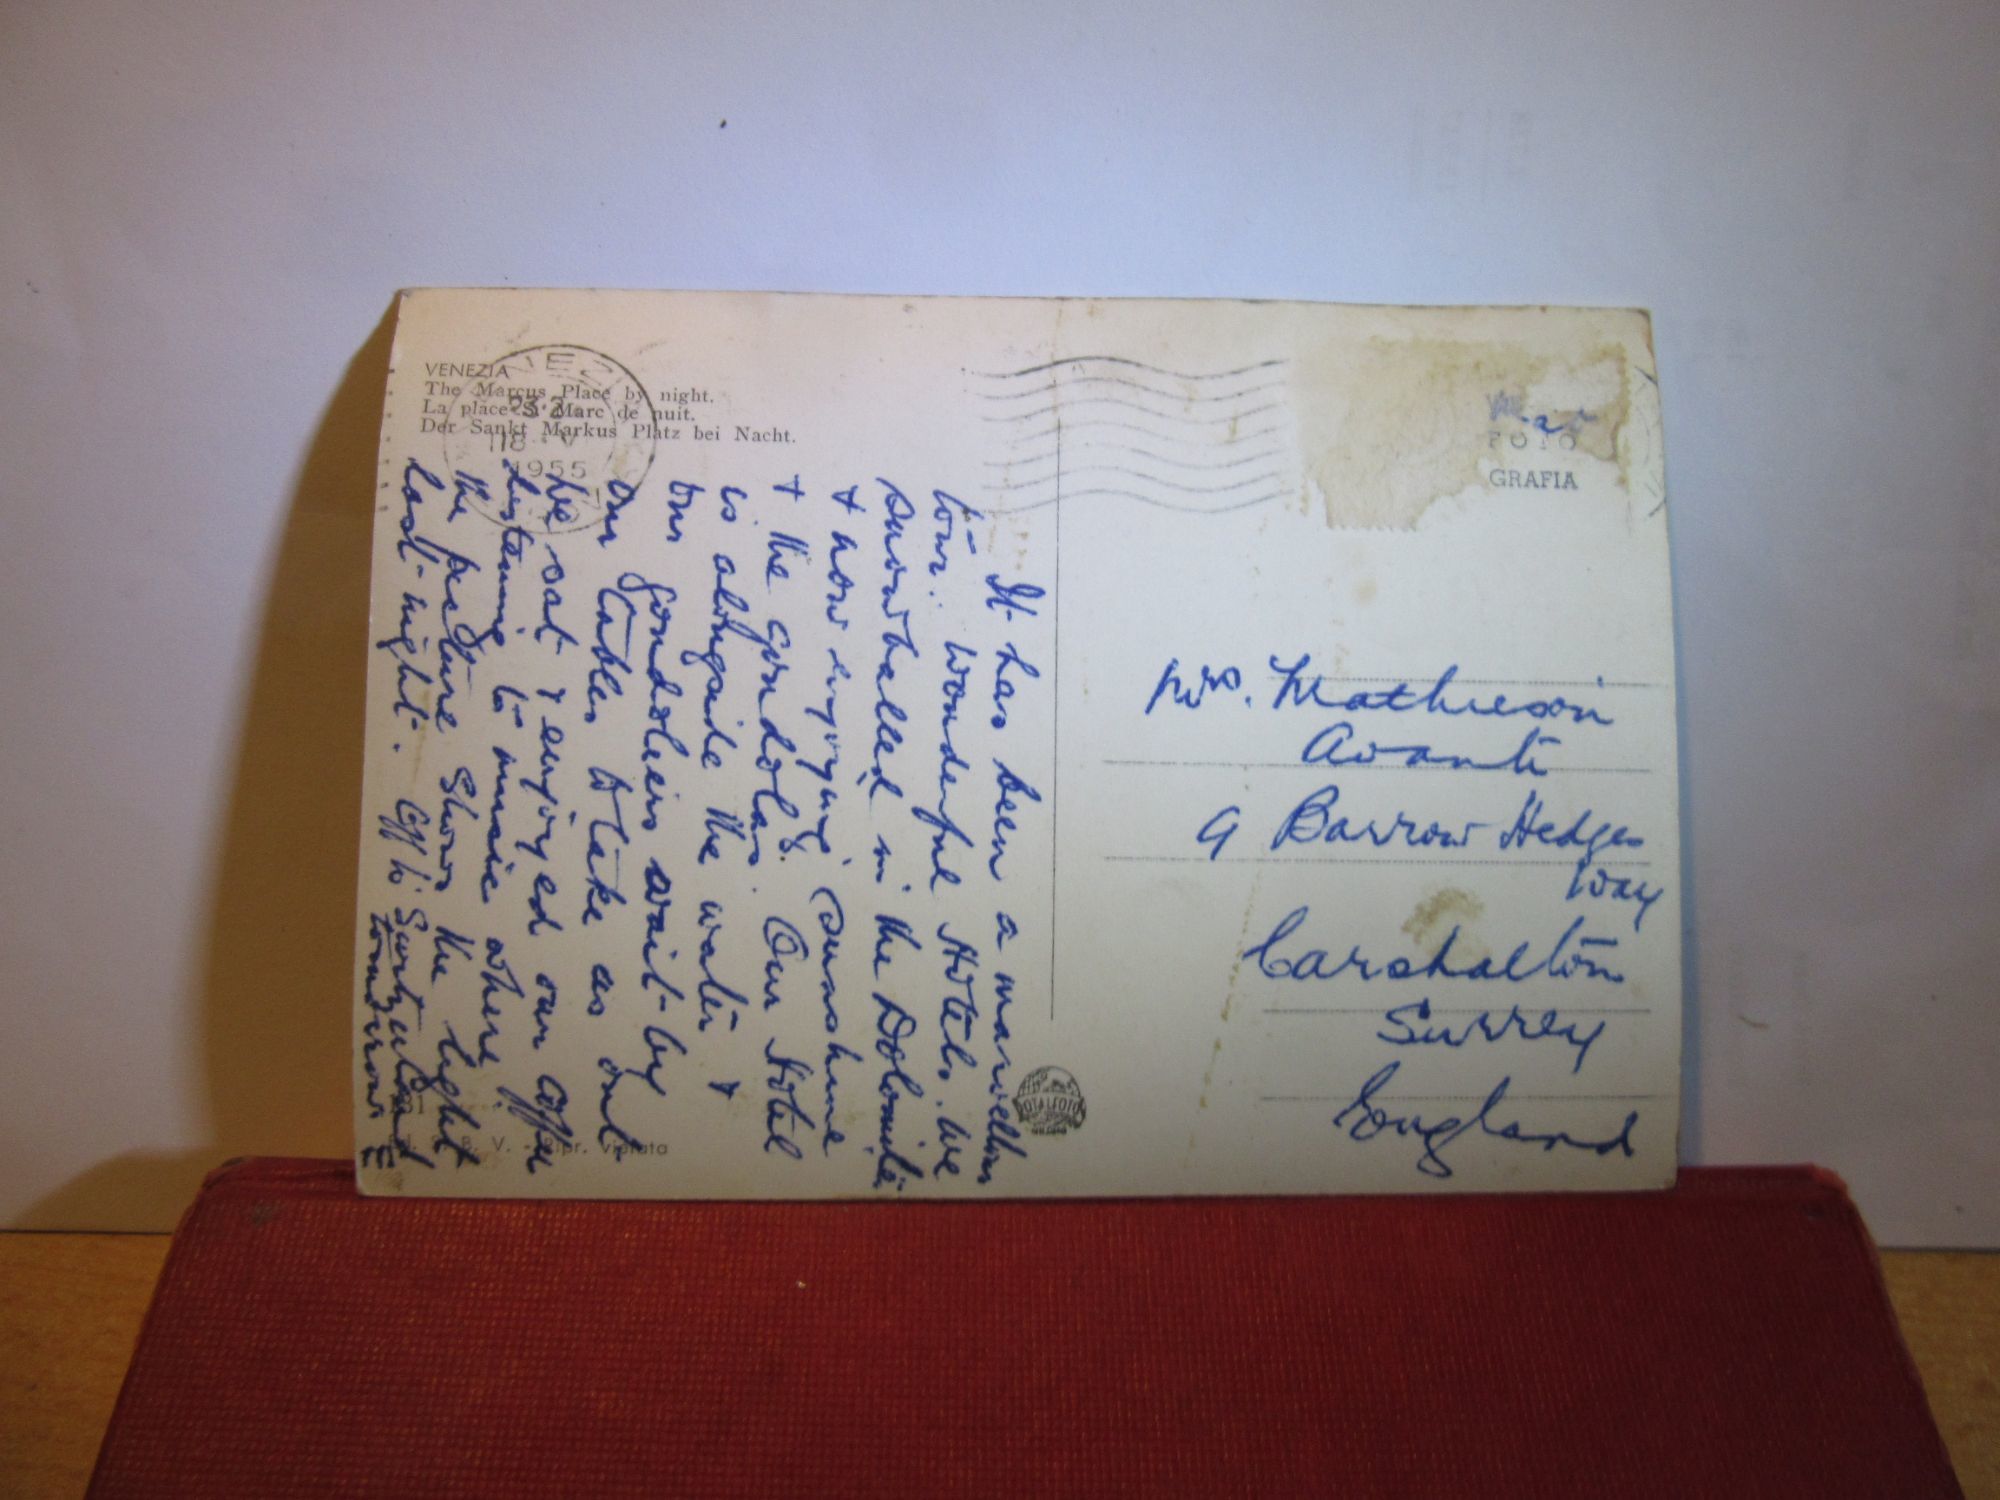 VENEZIA
The Marcus Place by night.
La place St Marc de nuit.
Der Sankt Markus Platz bei Nacht.
VENEZI
18 V
1955
It has been a marvellous
tour. Wonderful Hotels. We
snowballed in the Dolomites
+ now enjoying sunshine
+ the gondolas. Our Hotel
is alongside the water +
our gondoliers wait by
our tables to take us out
We sat + enjoyed our coffee
listening to music where
the picture shows the light
last night. Off to Switzerland
tomorrow
FOTO
GRAFIA
Mrs. Mathieson
Avanti
9 Barrow Hedges
Way
Carshalton
Surrey
England
ROTALFOTO
B. V. - Ripr. vietata